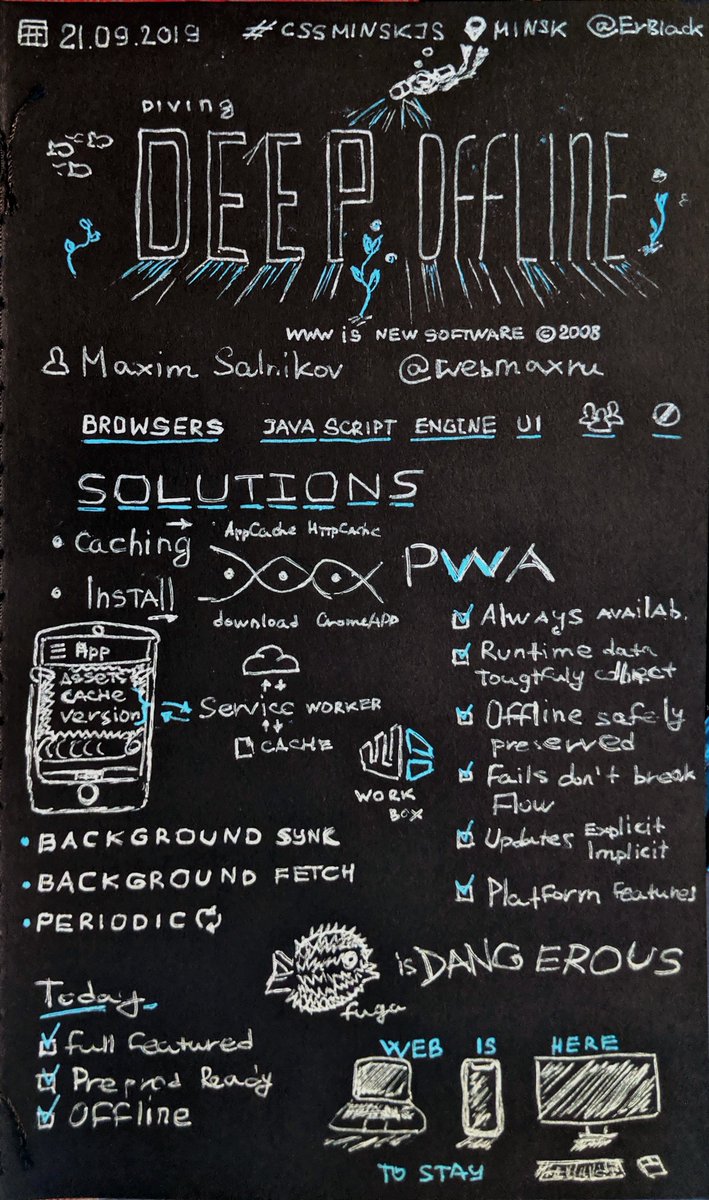 21.09.2019 #CSSMINSKJS MINSK @ErBlack
DIVING
DEEP OFFLINE
WWW IS NEW SOFTWARE ©2008
Maxim Salnikov @webmaxru
BROWSERS JAVA SCRIPT ENGINE UI
SOLUTIONS
• Caching
AppCache HttpCache
• INSTAll
download CromeAPP
PWA
Always AVAILAB.
Runtime data
tougtfuly collect
Offline safely
preserved
Fails don't break
Flow
Updates Explicit
Implicit
Platform Features
App
ASSETS
CACHE
version
Service WORKER
CACHE
WORK
BOX
• BACKGROUND SYNC
• BACKGROUND FETCH
• PERIODIC
fuga
is DANGEROUS
Today
Full Featured
Preprod Ready
Offline
WEB IS HERE
TO STAY